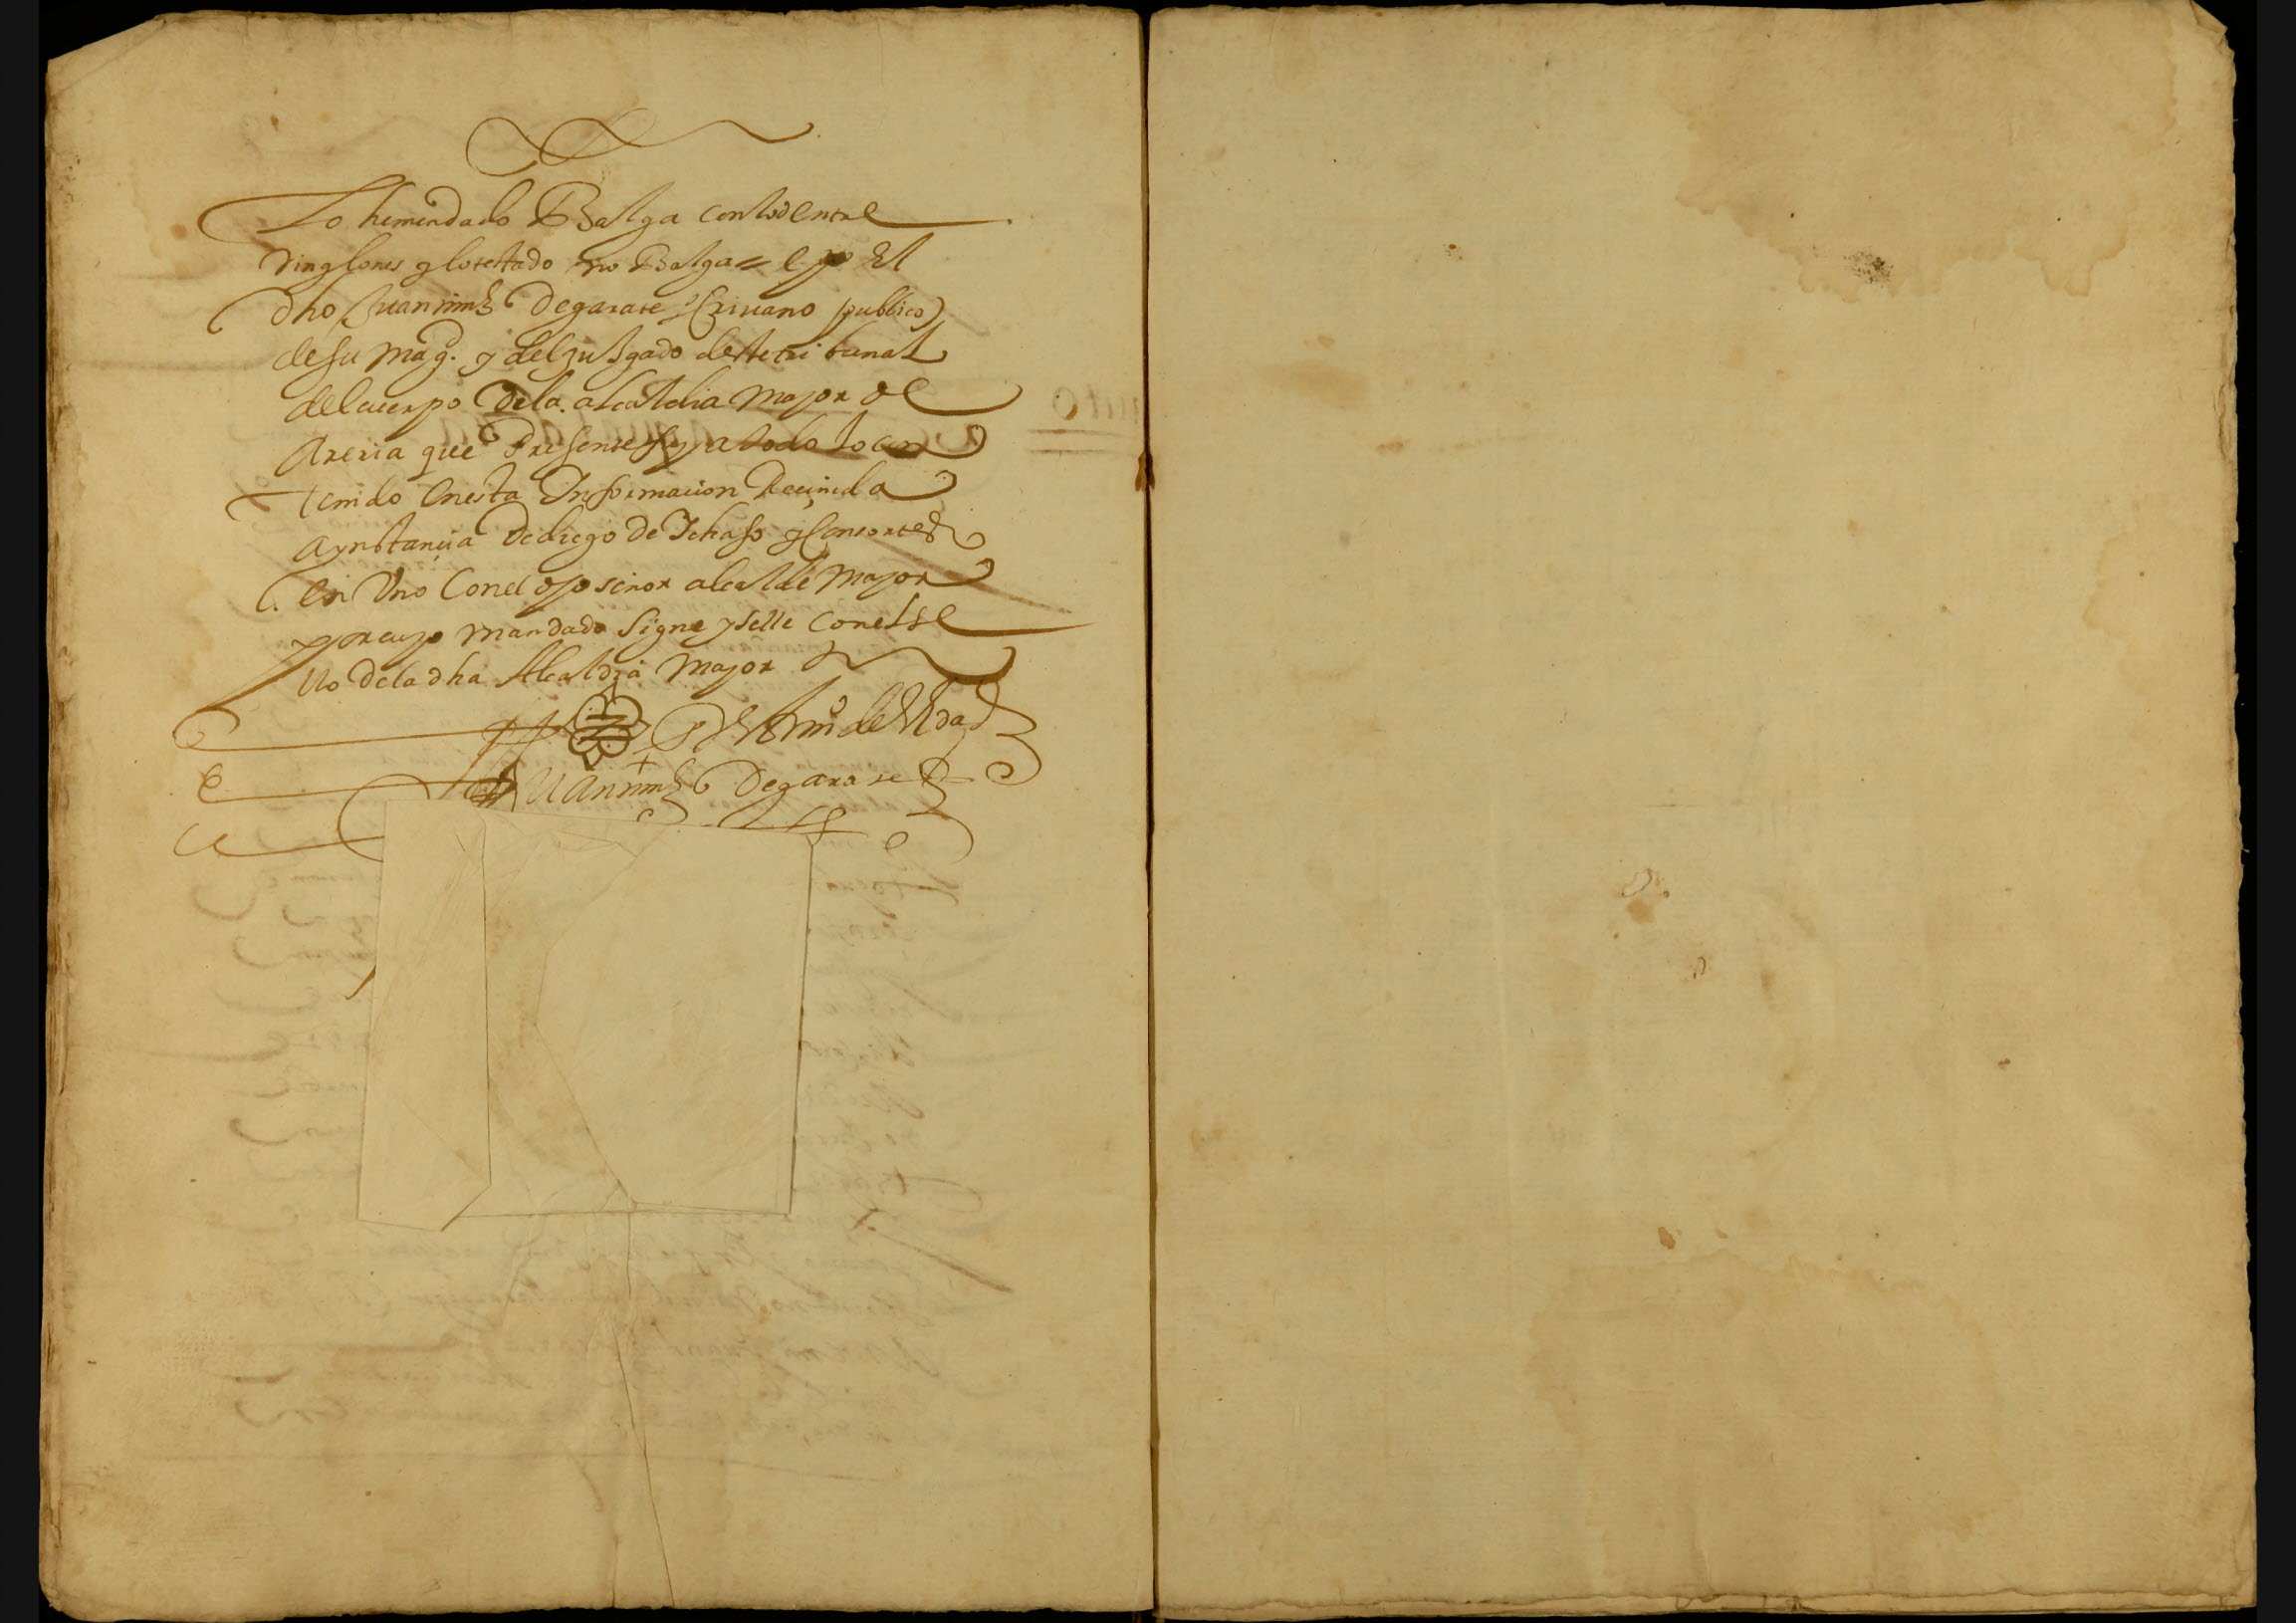 Lo hemendado Balga con lo d entre
Ringlones y lo testado no Balga = e yo El
dho Juan mnz de garate escrivano publico
de su mag.d y del juzgado deste tribunal
del cuerpo de la alcaldia mayor de
Areria que Presente fuy a todo lo con
tenido En esta Informacion Reciuida
a ynstançia de diego de Ichaso y Consortes
en Vno Con el dho señor alcalde mayor
por cuyo mandado signe y selle con el se
llo de la dha Alcaldia mayor
En testimº de Verdad
Juan mnz de garate